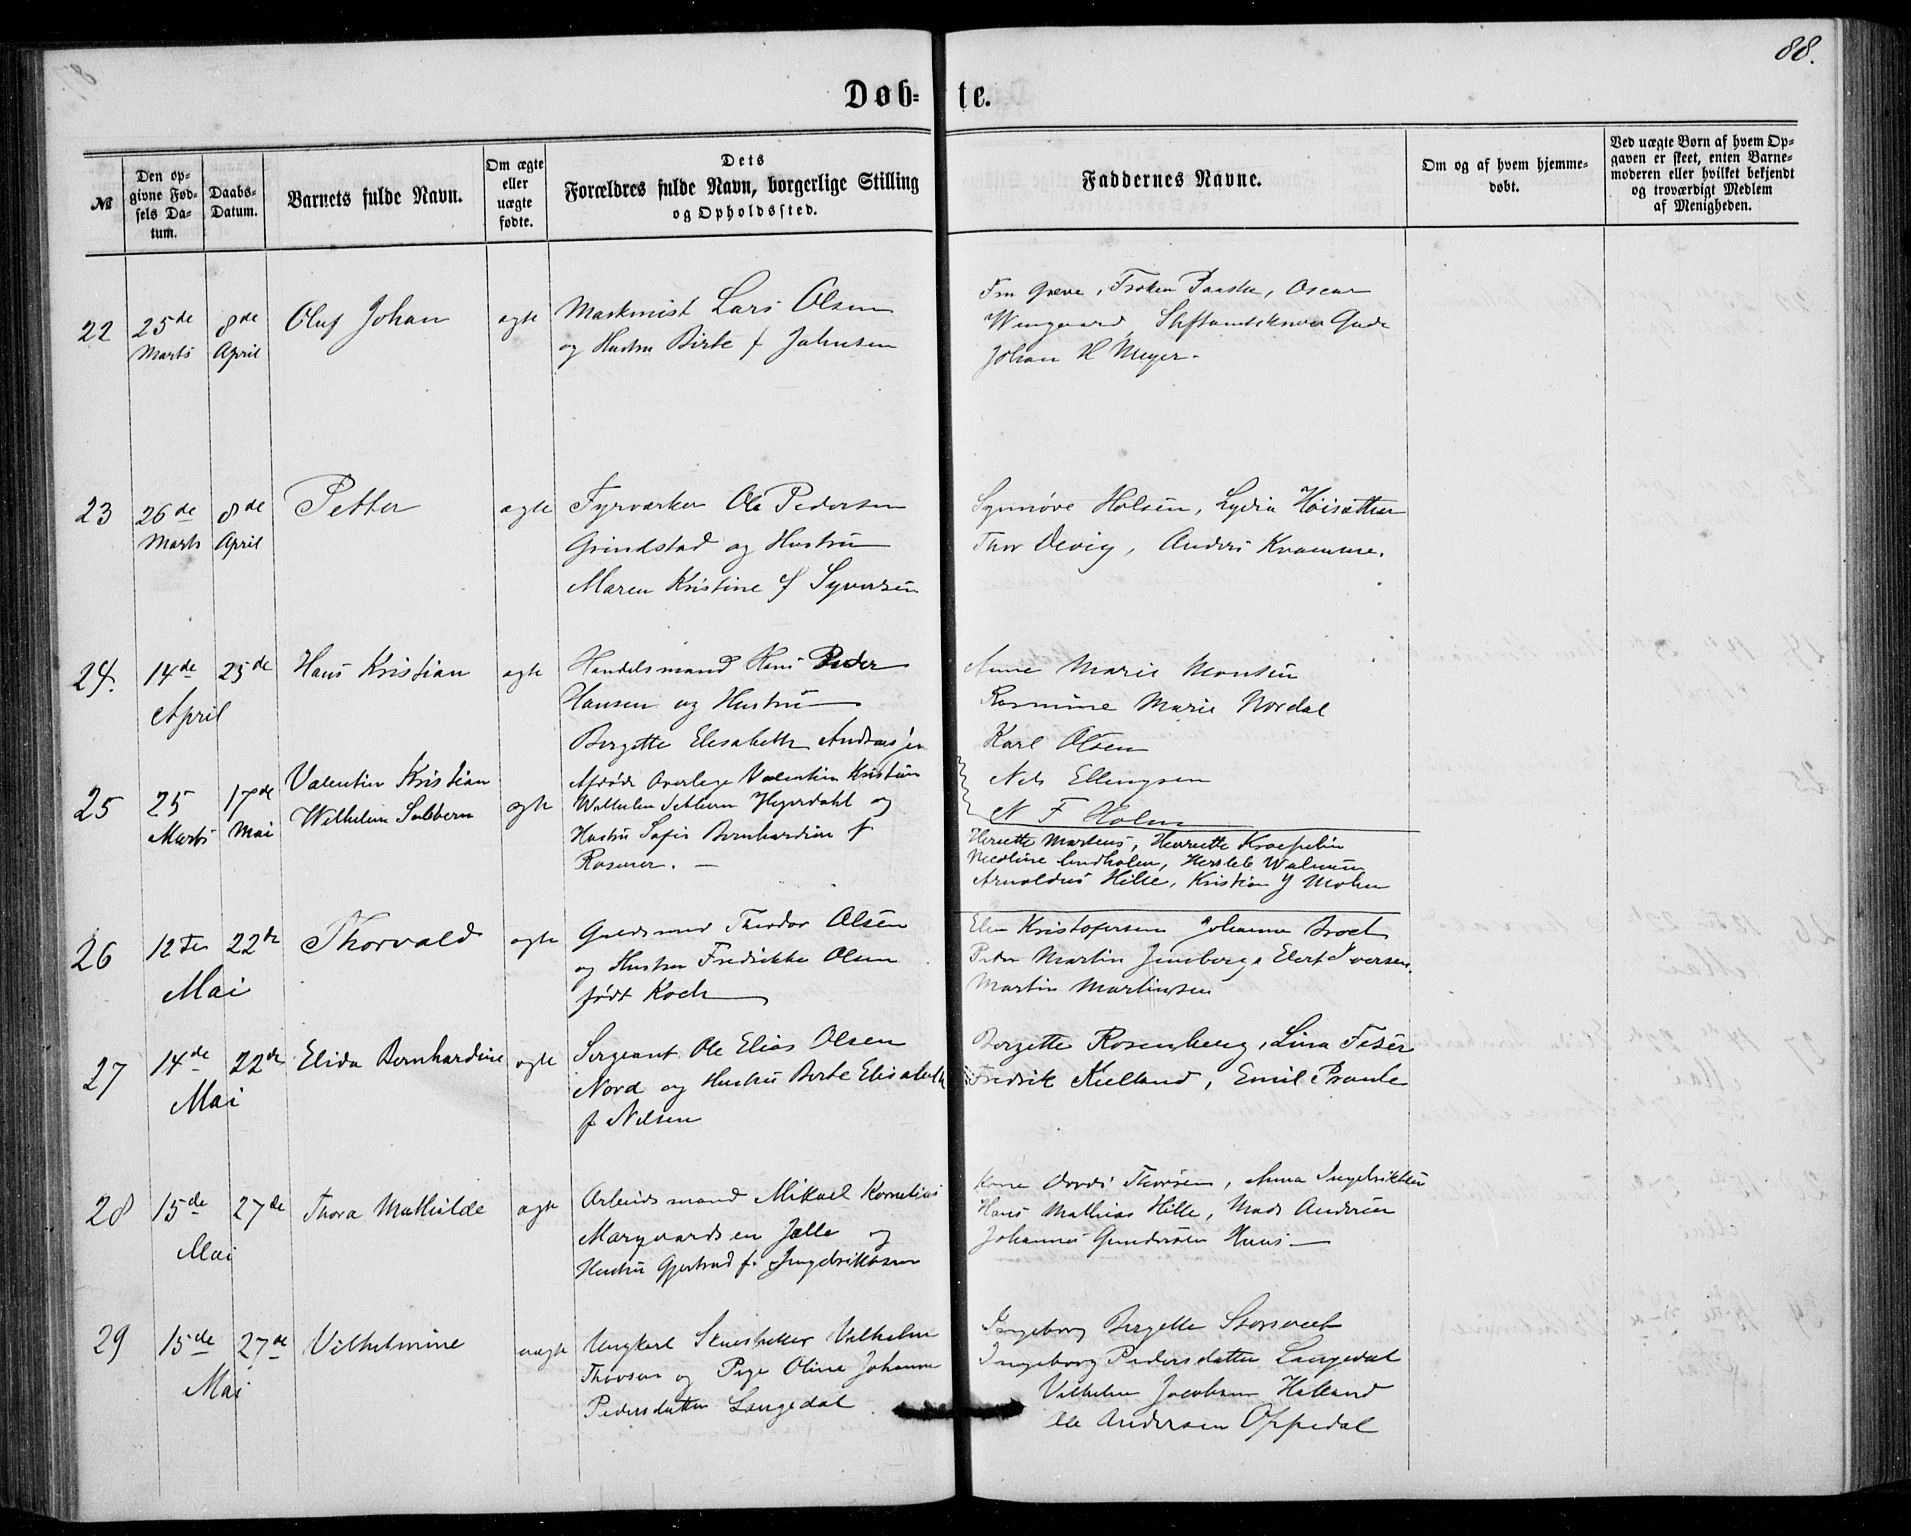 88.
Døb- te.
№
Den op-
givne Fød-
sels Da-
tum.
Daabs-
Datum.
Barnets fulde Navn.
Om ægte
eller
uægte
fødte.
Dets
Forældres fulde Navn, borgerlige Stilling
og Opholdssted.
Faddernes Navne.
Om og af hvem hjemme-
døbt.
Ved uægte Børn af hvem Op-
gaven er skeet, enten Barne-
moderen eller hvilket bekjendt
og troværdigt Medlem
af Menigheden.
22
25de
Marts
8de
April
Oluf Johan
ægte
Maskinist Lars Olsen
og Hustru Birte f Johnsen
Fru Greve, Frøken Paaske, Oscar
Wingaard, Gade
Johan H Meyer.
23
26de
Marts
8de
April
Petter
ægte
Fyrværker Ole Pedersen
Grindstad og Hustru
Maren Kristine f Syversen
Synnøve Holsen, Lydia Høisæther
Thor Devig, Anders Kramme.
24.
14de
April
25de
Hans Kristian
ægte
Handelsmand Hans Peder
Hansen og Hustru
Birgitte Elisabeth Andreasen
Anne Marie Monsen
Rasmine Marie Nordal
Karl Olsen
Nels Ellingsen
N F Holm
25
25
Marts
17de
Mai
Valentin Kristian
Wilhelm
ægte
Afdøde Overlæge Valentin Kristian
Wilhelm Heyerdahl og
Hustru Sofie Bernhardine f
Rosener.
Henrette Martens, Henriette Kraepelin
Nicoline Lindholm, Hersleb Walnum
Arnoldus Hille, Kristian J Mohn
26
12te
Mai
22de
Thorvald
ægte
Guldsmed Theodor Olsen
og Hustru Fredrikke Olsen
født Koch
Elen Kristofersen Johanna Broch
Peder Martin Elert Iversen.
Martin Martinsen
27
14de
Mai
22de
Elida Bernhardine
ægte
Sergeant Ole Elias Olsen
Nord og Hustru Berte Elisabeth
f Nilsen
Bergitte Rosenberg, Lina Feser
Fredrik Kielland, Emil Prante
28
15de
Mai
27de
Thora Mathilde
ægte
Arbeidsmand Mikael Kornelius
Margvardsen Jælle og
Hustru Gjertrud f. Ingebriktsen
Thorsen, Anna Ingebriktsen
Hans Mathias Hille, Mads Andersen
Johannes Gundersen Huus
29
15de
Mai
27de
Vilhelmine
uægte
Ungkarl Vilhelm
Thorsen og Pige Oline Johanne
Pedersdatter Langedal
Ingeborg Bergitte Storsveet
Ingeborg Pedersdatter Langedal
Vilhelm Jacobsen Helland
Ole Andersen Oppedal